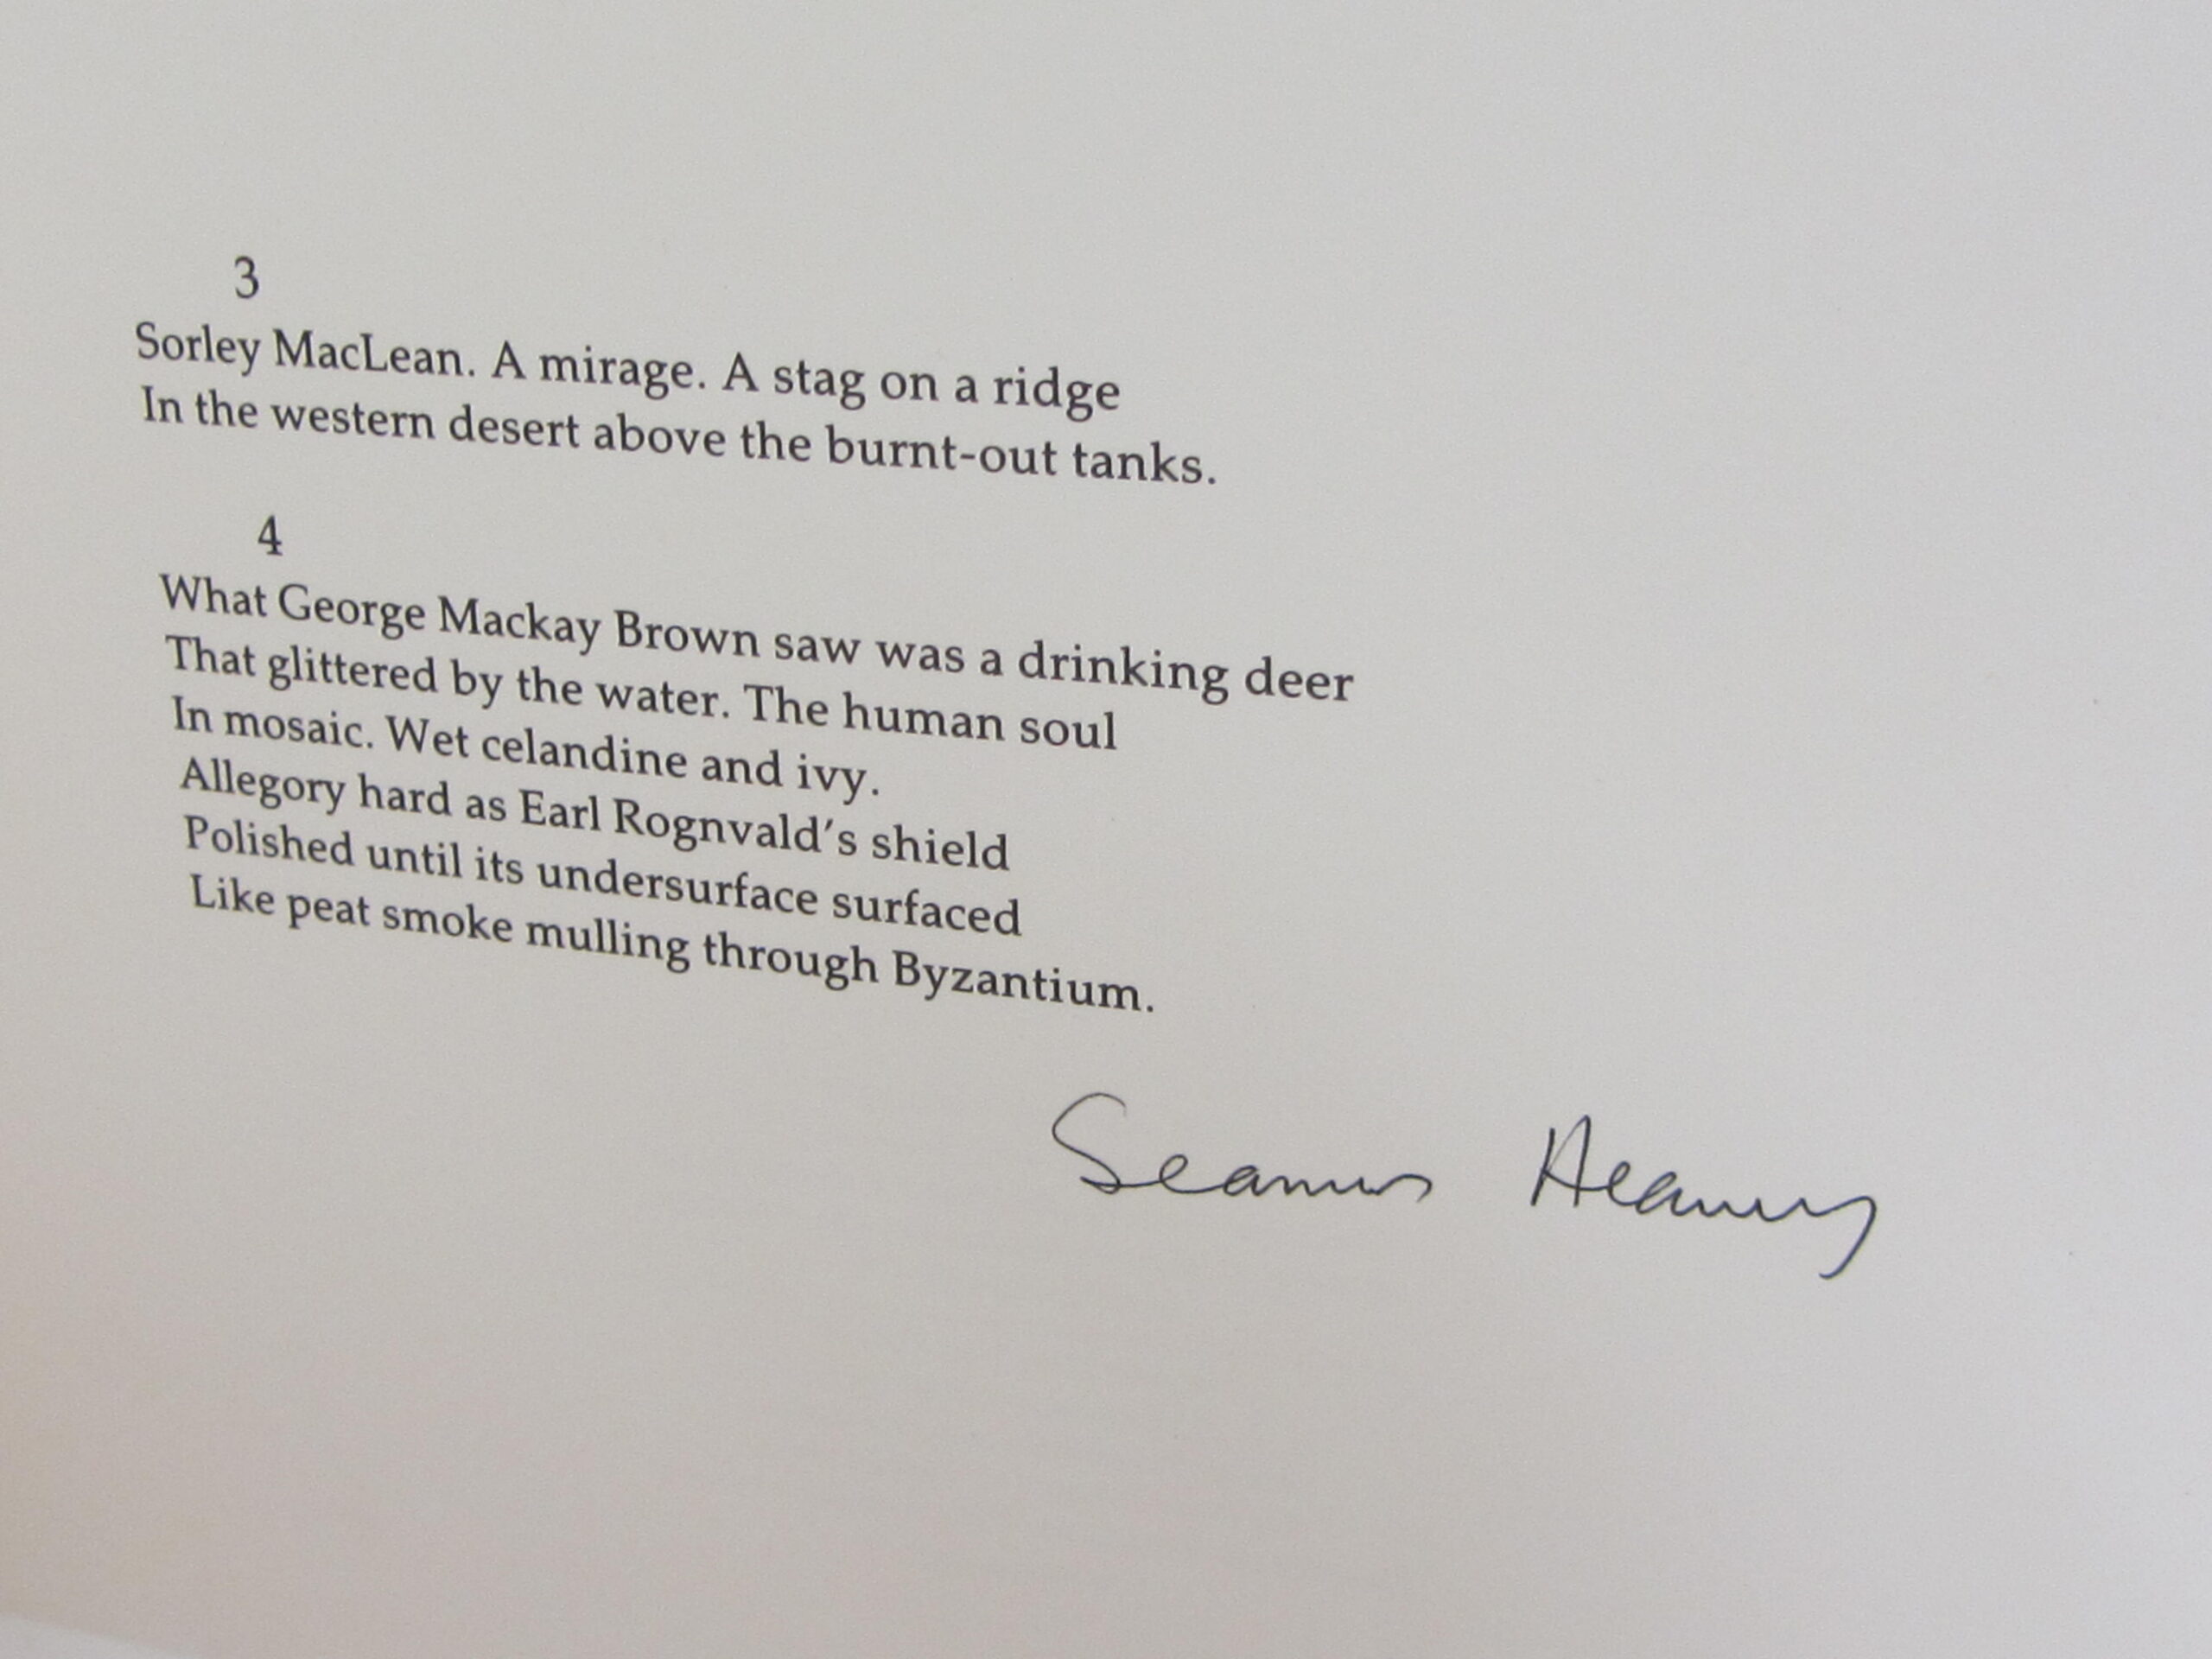 3
Sorley MacLean. A mirage. A stag on a ridge
In the western desert above the burnt-out tanks.
4
What George Mackay Brown saw was a drinking deer
That glittered by the water. The human soul
In mosaic. Wet celandine and ivy.
Allegory hard as Earl Rognvald's shield
Polished until its undersurface surfaced
Like peat smoke mulling through Byzantium.
Seamus Heaney